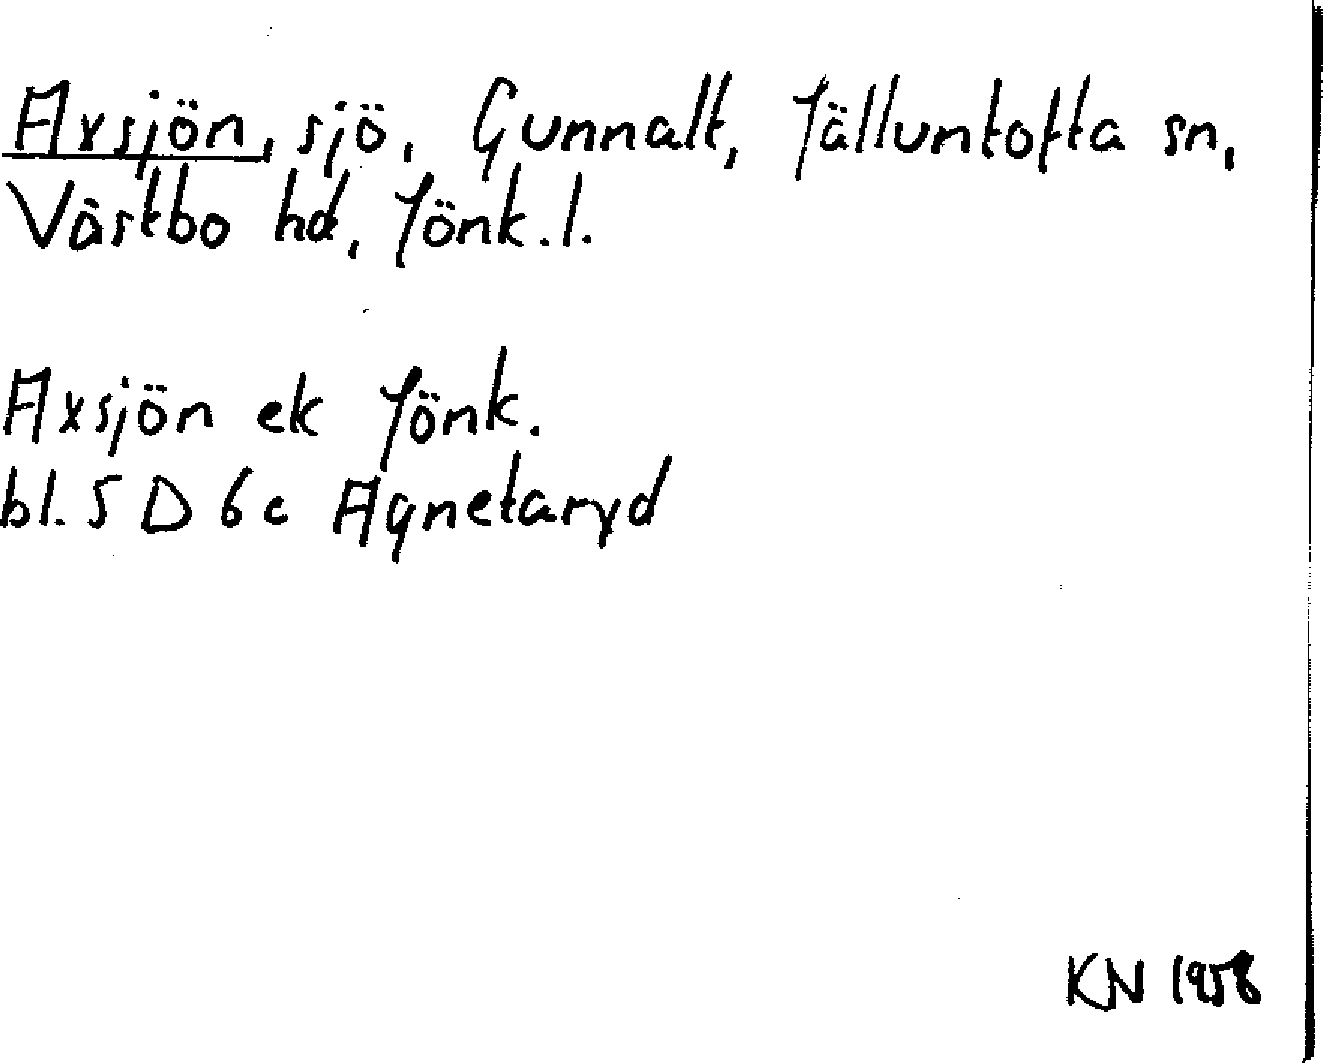 Axsjön, sjö, Gunnalt, Jälluntofta sn,
Västbo hd, Jönk. l.
Axsjön ek Jönk.
bl. 5 D 6c Agnetaryd
KN 1958